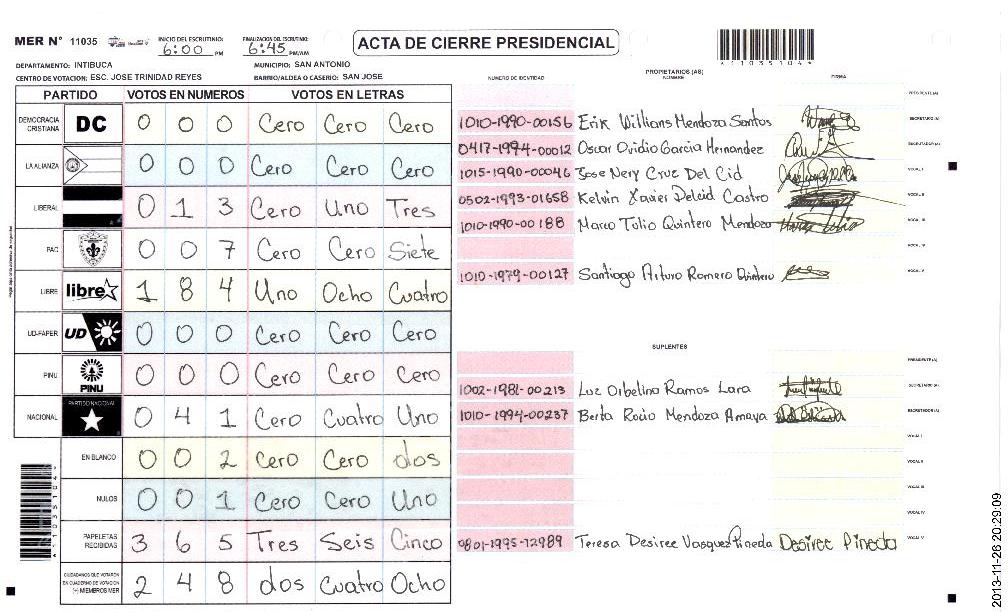 MER N° 11035 INICIO DEL ESCRUTINIO: 6:00 PM FINALIZACION DEL ESCRUTINIO: 6:45 PM/AM ACTA DE CIERRE PRESIDENCIAL
DEPARTAMENTO: INTIBUCA MUNICIPIO: SAN ANTONIO
CENTRO DE VOTACION: ESC. JOSE TRINIDAD REYES BARRIO/ALDEA O CASERIO: SAN JOSE
PARTIDO VOTOS EN NUMEROS VOTOS EN LETRAS
DEMOCRACIA CRISTIANA DC 0 0 0 Cero Cero Cero
LA ALIANZA 0 0 0 Cero Cero Cero
LIBERAL 0 1 3 Cero Uno Tres
PAC 0 0 7 Cero Cero Siete
LIBRE libre 1 8 4 Uno Ocho Cuatro
UD-FAPER UD 0 0 0 Cero Cero Cero
PINU PINU 0 0 0 Cero Cero Cero
NACIONAL PARTIDO NACIONAL 0 4 1 Cero Cuatro Uno
EN BLANCO 0 0 2 Cero Cero dos
NULOS 0 0 1 Cero Cero Uno
PAPELETAS RECIBIDAS 3 6 5 Tres Seis Cinco
CIUDADANOS QUE VOTARON EN CUADERNO DE VOTACION (+) MIEMBROS MER 2 4 8 dos Cuatro Ocho
PROPIETARIOS (AS)
NUMERO DE IDENTIDAD NOMBRE FIRMA
PRESIDENTE (A)
1010-1990-00156 Erik Willians Mendoza Santos SECRETARIO (A)
0417-1994-00012 Oscar Ovidio Garcia Hernandez ESCRUTADOR (A)
1015-1990-00046 Jose Nery Cruz Del Cid VOCAL I
0502-1993-01658 Kelvin Xavier Delcid Castro VOCAL II
1010-1990-00188 Marco Tulio Quintero Mendoza VOCAL III
VOCAL IV
1010-1979-00127 Santiago Arturo Romero Quintero VOCAL V
SUPLENTES
PRESIDENTE (A)
1002-1981-00213 Luz Orbelina Ramos Lara SECRETARIO (A)
1010-1994-00237 Berta Rocio Mendoza Amaya ESCRUTADOR (A)
VOCAL I
VOCAL II
VOCAL III
VOCAL IV
0801-1995-12989 Teresa Desiree Vasquez Pineda Desiree Pineda VOCAL V
2013-11-26 20:29:09